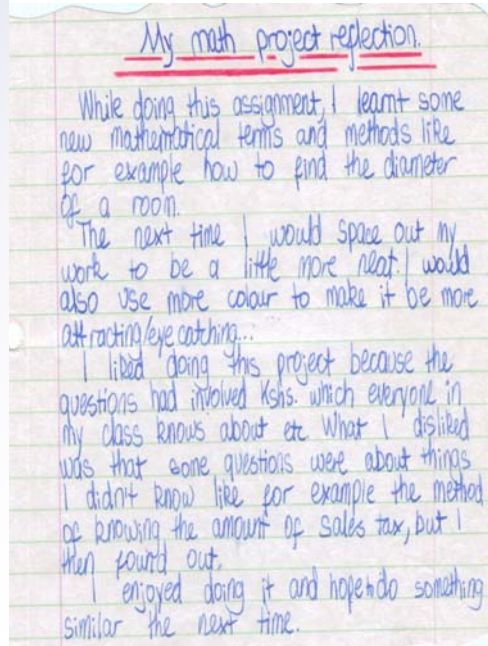 My math project reflection.
While doing this assignment, I learnt some
new mathematical terms and methods like
for example how to find the diameter
of a room.
The next time I would space out my
work to be a little more neat. I would
also use more colour to make it be more
attracting/eye catching...
I liked doing this project because the
questions had involved Kshs. which everyone in
my class knows about etc What I disliked
was that some questions were about things
I didn't know like for example the method
of knowing the amount of sales tax, but I
then found out.
I enjoyed doing it and hope to do something
similar the next time.